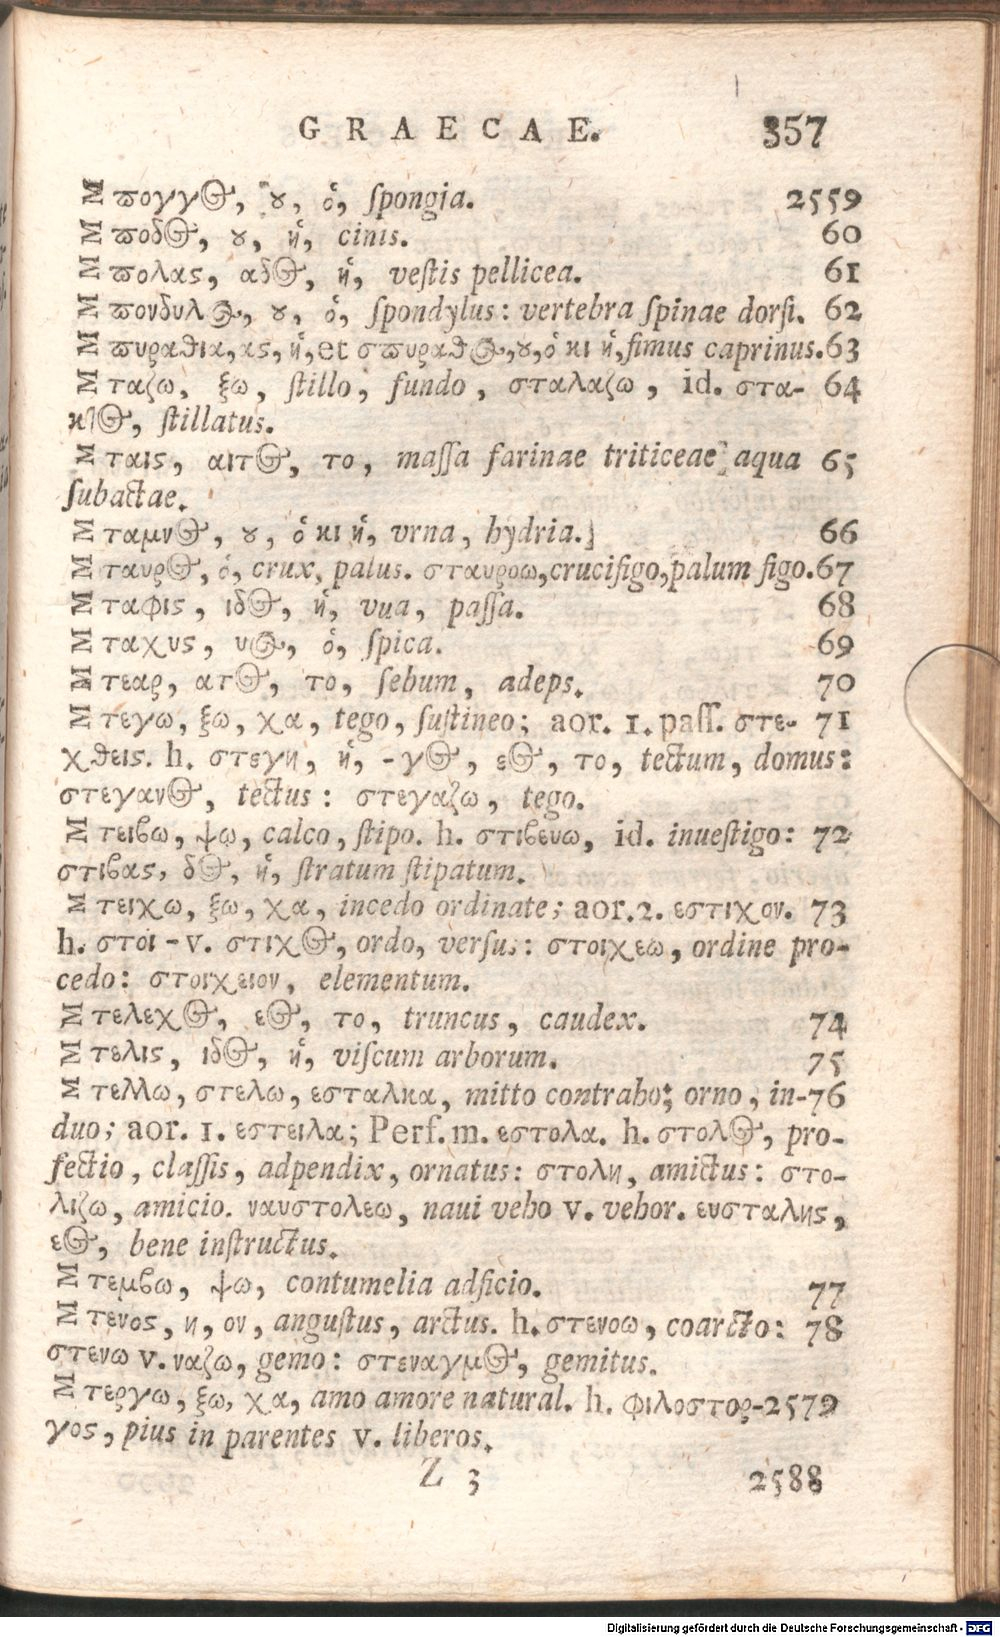 GRAECAE. 357
Σπογγος, ȣ, ὁ, ſpongia. 2559
Σποδος, ȣ, ἡ, cinis. 60
Σπολας, αδος, ἡ, veſtis pellicea. 61
Σπονδυλος, ȣ, ὁ, ſpondylus: vertebra ſpinae dorſi. 62
Σπυραθια, ας, ἡ, et σπυραθος, ȣ, ὁ κι ἡ, fimus caprinus. 63
Σταζω, ξω, ſtillo, fundo, σταλαζω, id. στα- 64
κτος, ſtillatus.
Σταις, αιτος, το, maſſa farinae triticeae aqua 65
ſubactae.
Σταμνος, ȣ, ὁ κι ἡ, vrna, hydria. 66
Σταυρος, ὁ, crux, palus. σταυροω, crucifigo, palum figo. 67
Σταφις, ιδος, ἡ, vua, paſſa. 68
Σταχυς, υος, ὁ, ſpica. 69
Στεαρ, ατος, το, ſebum, adeps. 70
Στεγω, ξω, χα, tego, ſuſtineo; aor. 1. paſſ. στε- 71
χθεις. h. στεγη, ἡ, -γος, εος, το, tectum, domus:
στεγανος, tectus: στεγαζω, tego.
Στειβω, ψω, calco, ſtipo. h. στιβευω, id. inueſtigo: 72
στιβας, δος, ἡ, ſtratum ſtipatum.
Στειχω, ξω, χα, incedo ordinate; aor. 2. εστιχον. 73
h. στοι-v. στιχος, ordo, verſus: στοιχεω, ordine pro-
cedo: στοιχειον, elementum.
Στελεχος, εος, το, truncus, caudex. 74
Στελις, ιδος, ἡ, viſcum arborum. 75
Στελλω, στελω, εσταλκα, mitto contraho; orno, in- 76
duo; aor. 1. εστειλα; Perf. m. εστολα. h. στολος, pro-
fectio, claſſis, adpendix, ornatus: στολη, amictus: στο-
λιζω, amicio. ναυστολεω, naui veho v. vehor. ευσταλης,
εος, bene inſtructus.
Στεμβω, ψω, contumelia adficio. 77
Στενος, η, ον, anguſtus, arctus. h. στενοω, coarcto: 78
στενω v. ναζω, gemo: στεναγμος, gemitus.
Στεργω, ξω, χα, amo amore natural. h. φιλοστορ- 2579
γος, pius in parentes v. liberos.
Z 3 2588
Digitalisierung gefördert durch die Deutsche Forschungsgemeinschaft - DFG